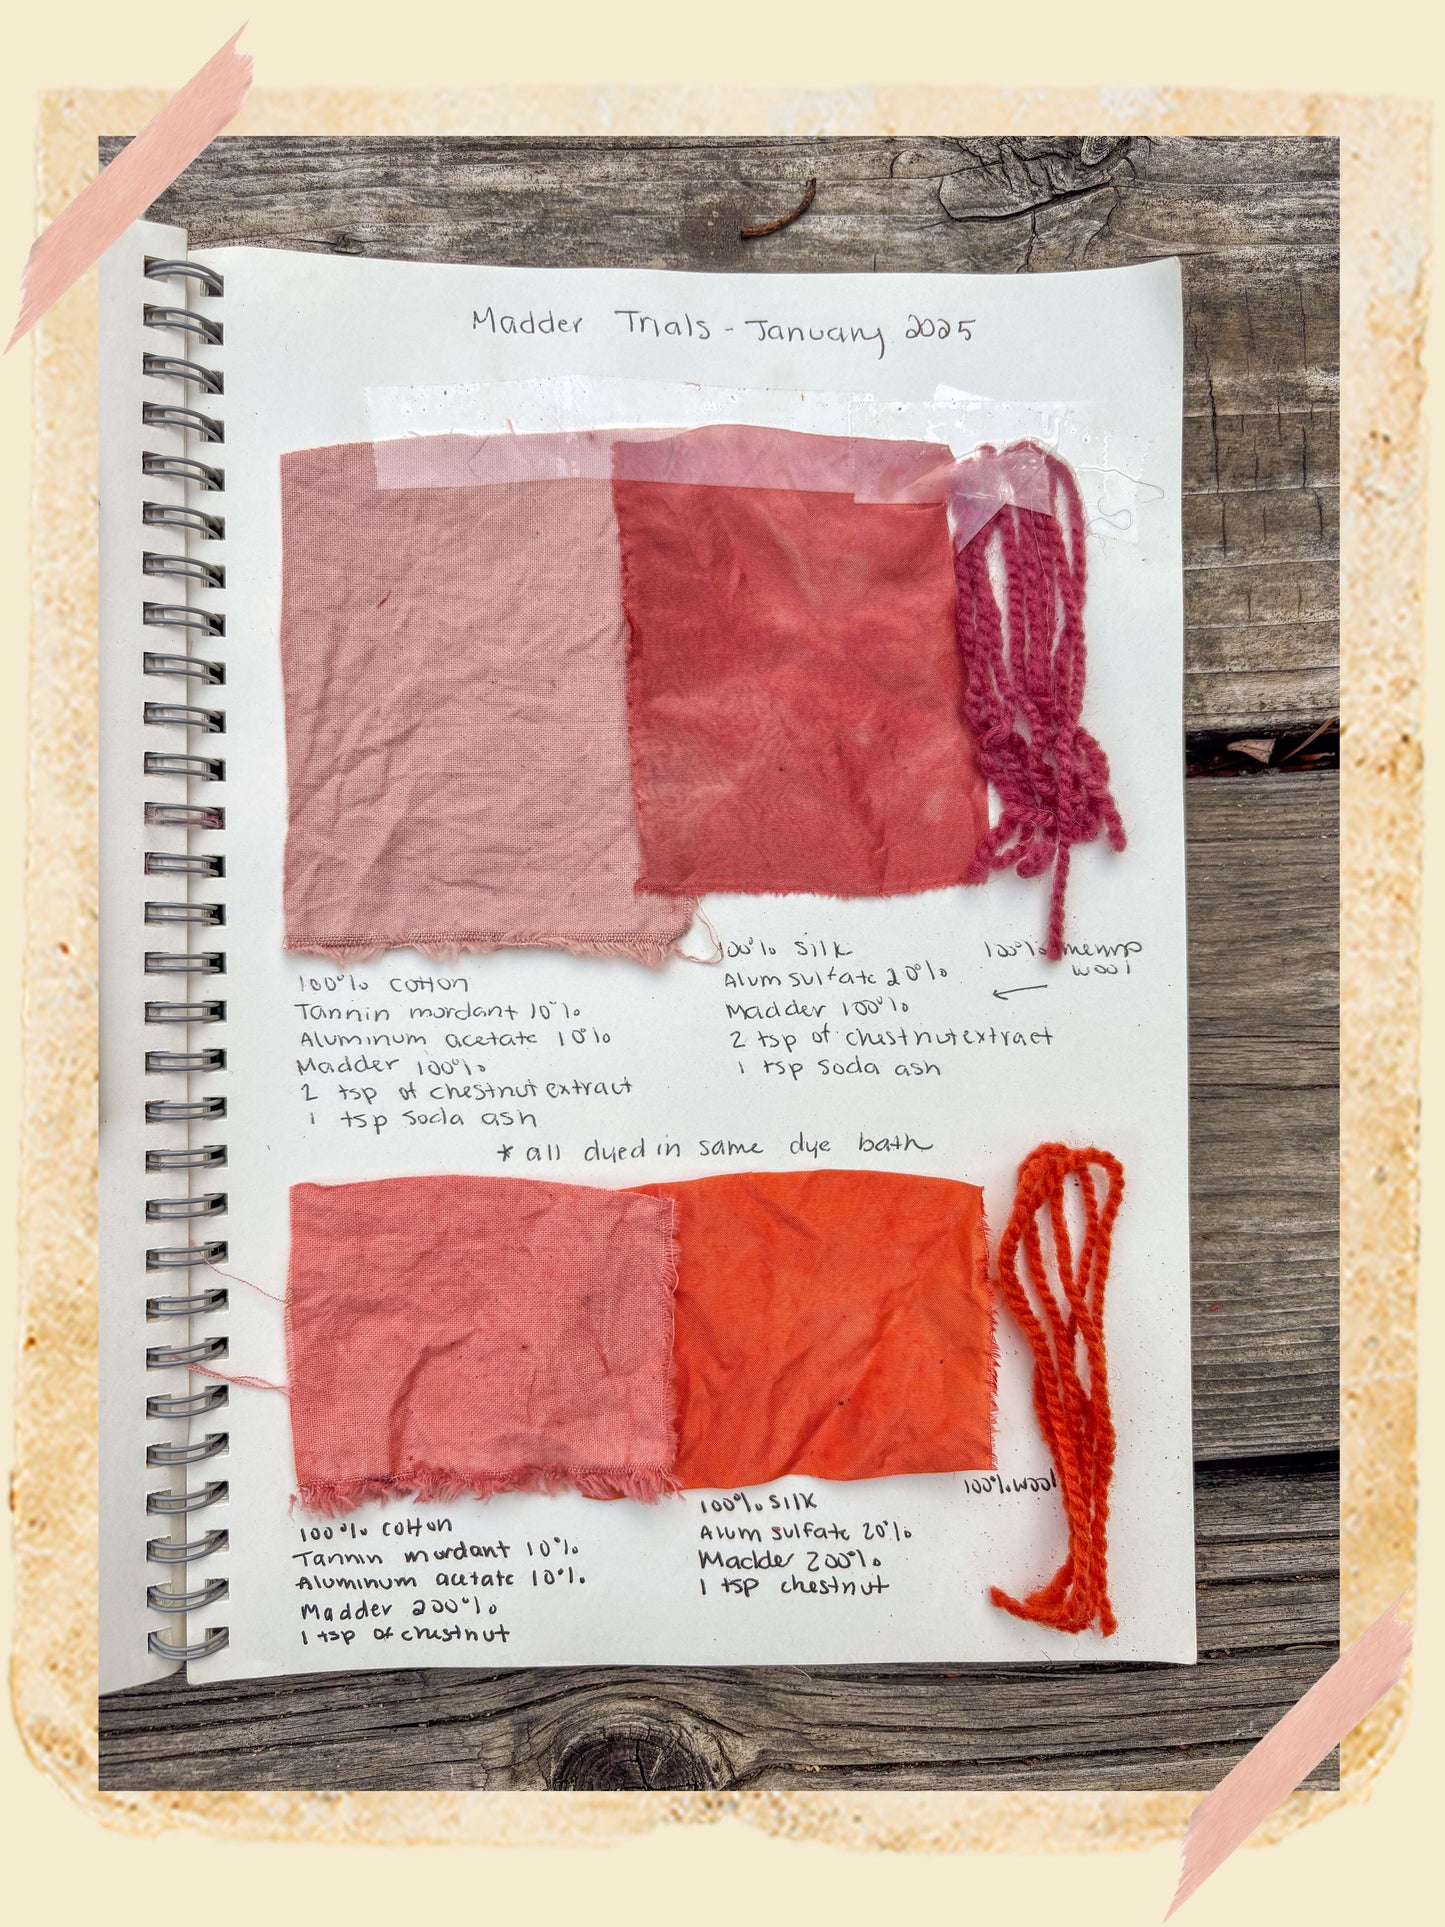 Madder Trials - January 2025
100% cotton
Tannin mordant 10%
Aluminum acetate 10%
Madder 100%
2 tsp of chestnut extract
1 tsp soda ash
100% silk
Alum sulfate 20%
Madder 100%
2 tsp of chestnut extract
1 tsp soda ash
100%
wool
* all dyed in same dye bath
100% cotton
Tannin mordant 10%
Aluminum acetate 10%.
Madder 200%
1 tsp of chestnut
100% silk
Alum sulfate 20%
Madder 200%
1 tsp chestnut
100% wool